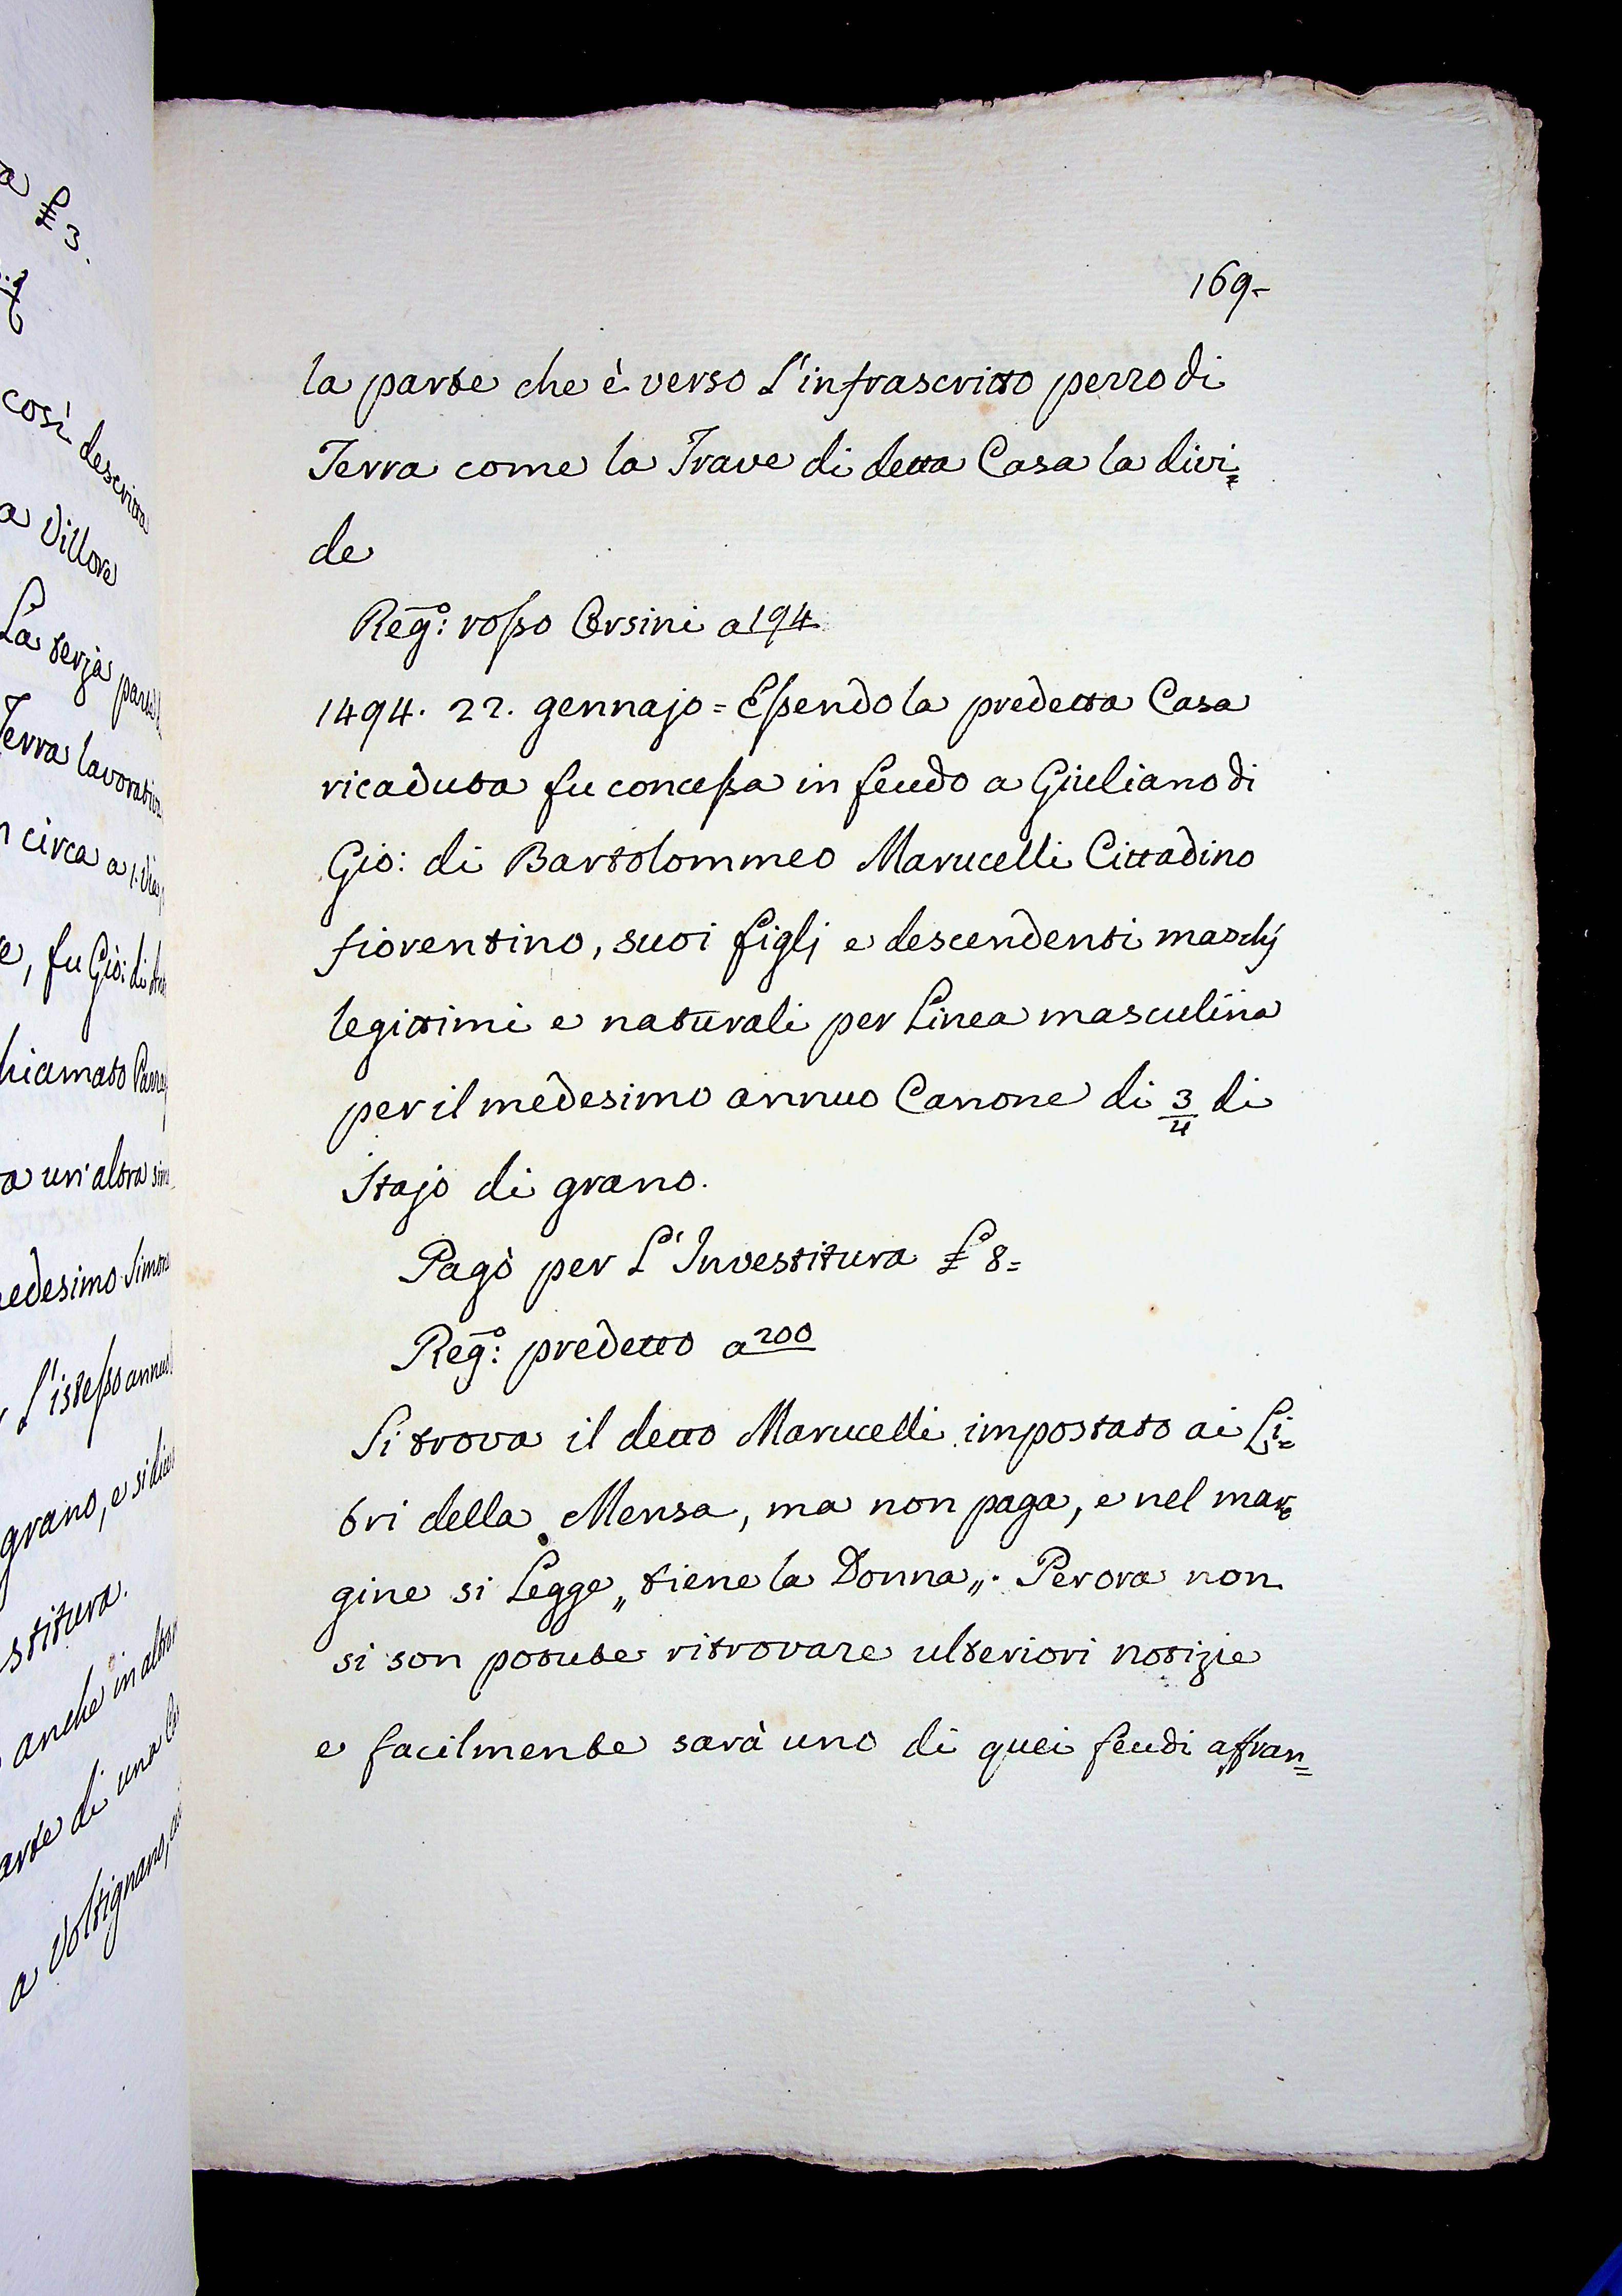 a ₤ 3.
così descritta
a Villore
La terza parte
Terra lavorativa
circa a 1.
e, fu Gio: di
hiamato
a un'altra
edesimo Simone
L'istesso annuo
grano, e si dice
stitura.
anche in altro
arte di una
a Voltignano,
169-
la parte che è verso L'infrascritto pezzo di
Terra come la Trave di detta Casa la divi=
de
Reg:º rosso Corsini a 194
1494. 22. gennajo = Essendo la predetta Casa
ricaduta fu concessa in feudo a Giuliano di
Gio: di Bartolommeo Marucelli Cittadino
fiorentino, suoi figlj e descendenti maschj
legittimi e naturali per Linea masculina
per il medesimo annuo Canone di 3/4 di
Stajo di grano.
Pagò per L'Investitura ₤ 8=
Reg:º predetto a 200
Si trova il detto Marucelli impostato ai Li=
bri della Mensa, ma non paga, e nel mar=
gine si Legge „tiene la Donna„. Per ora non
si son potute ritrovare ulteriori notizie
e facilmente sarà uno di quei feudi affran=